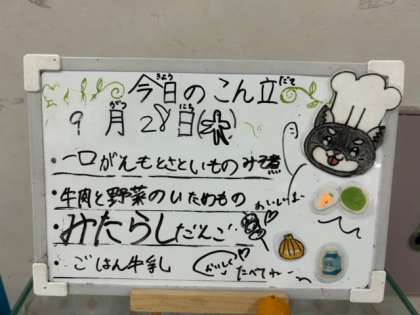 今日のこん立
きょう だて
9月28日(水)
がつ にち
・一口がんもとさといものみそ煮
・牛肉と野菜のいためもの
・みたらしだんご
・ごはん牛乳
おいしいよー
おいしく
たべてねー